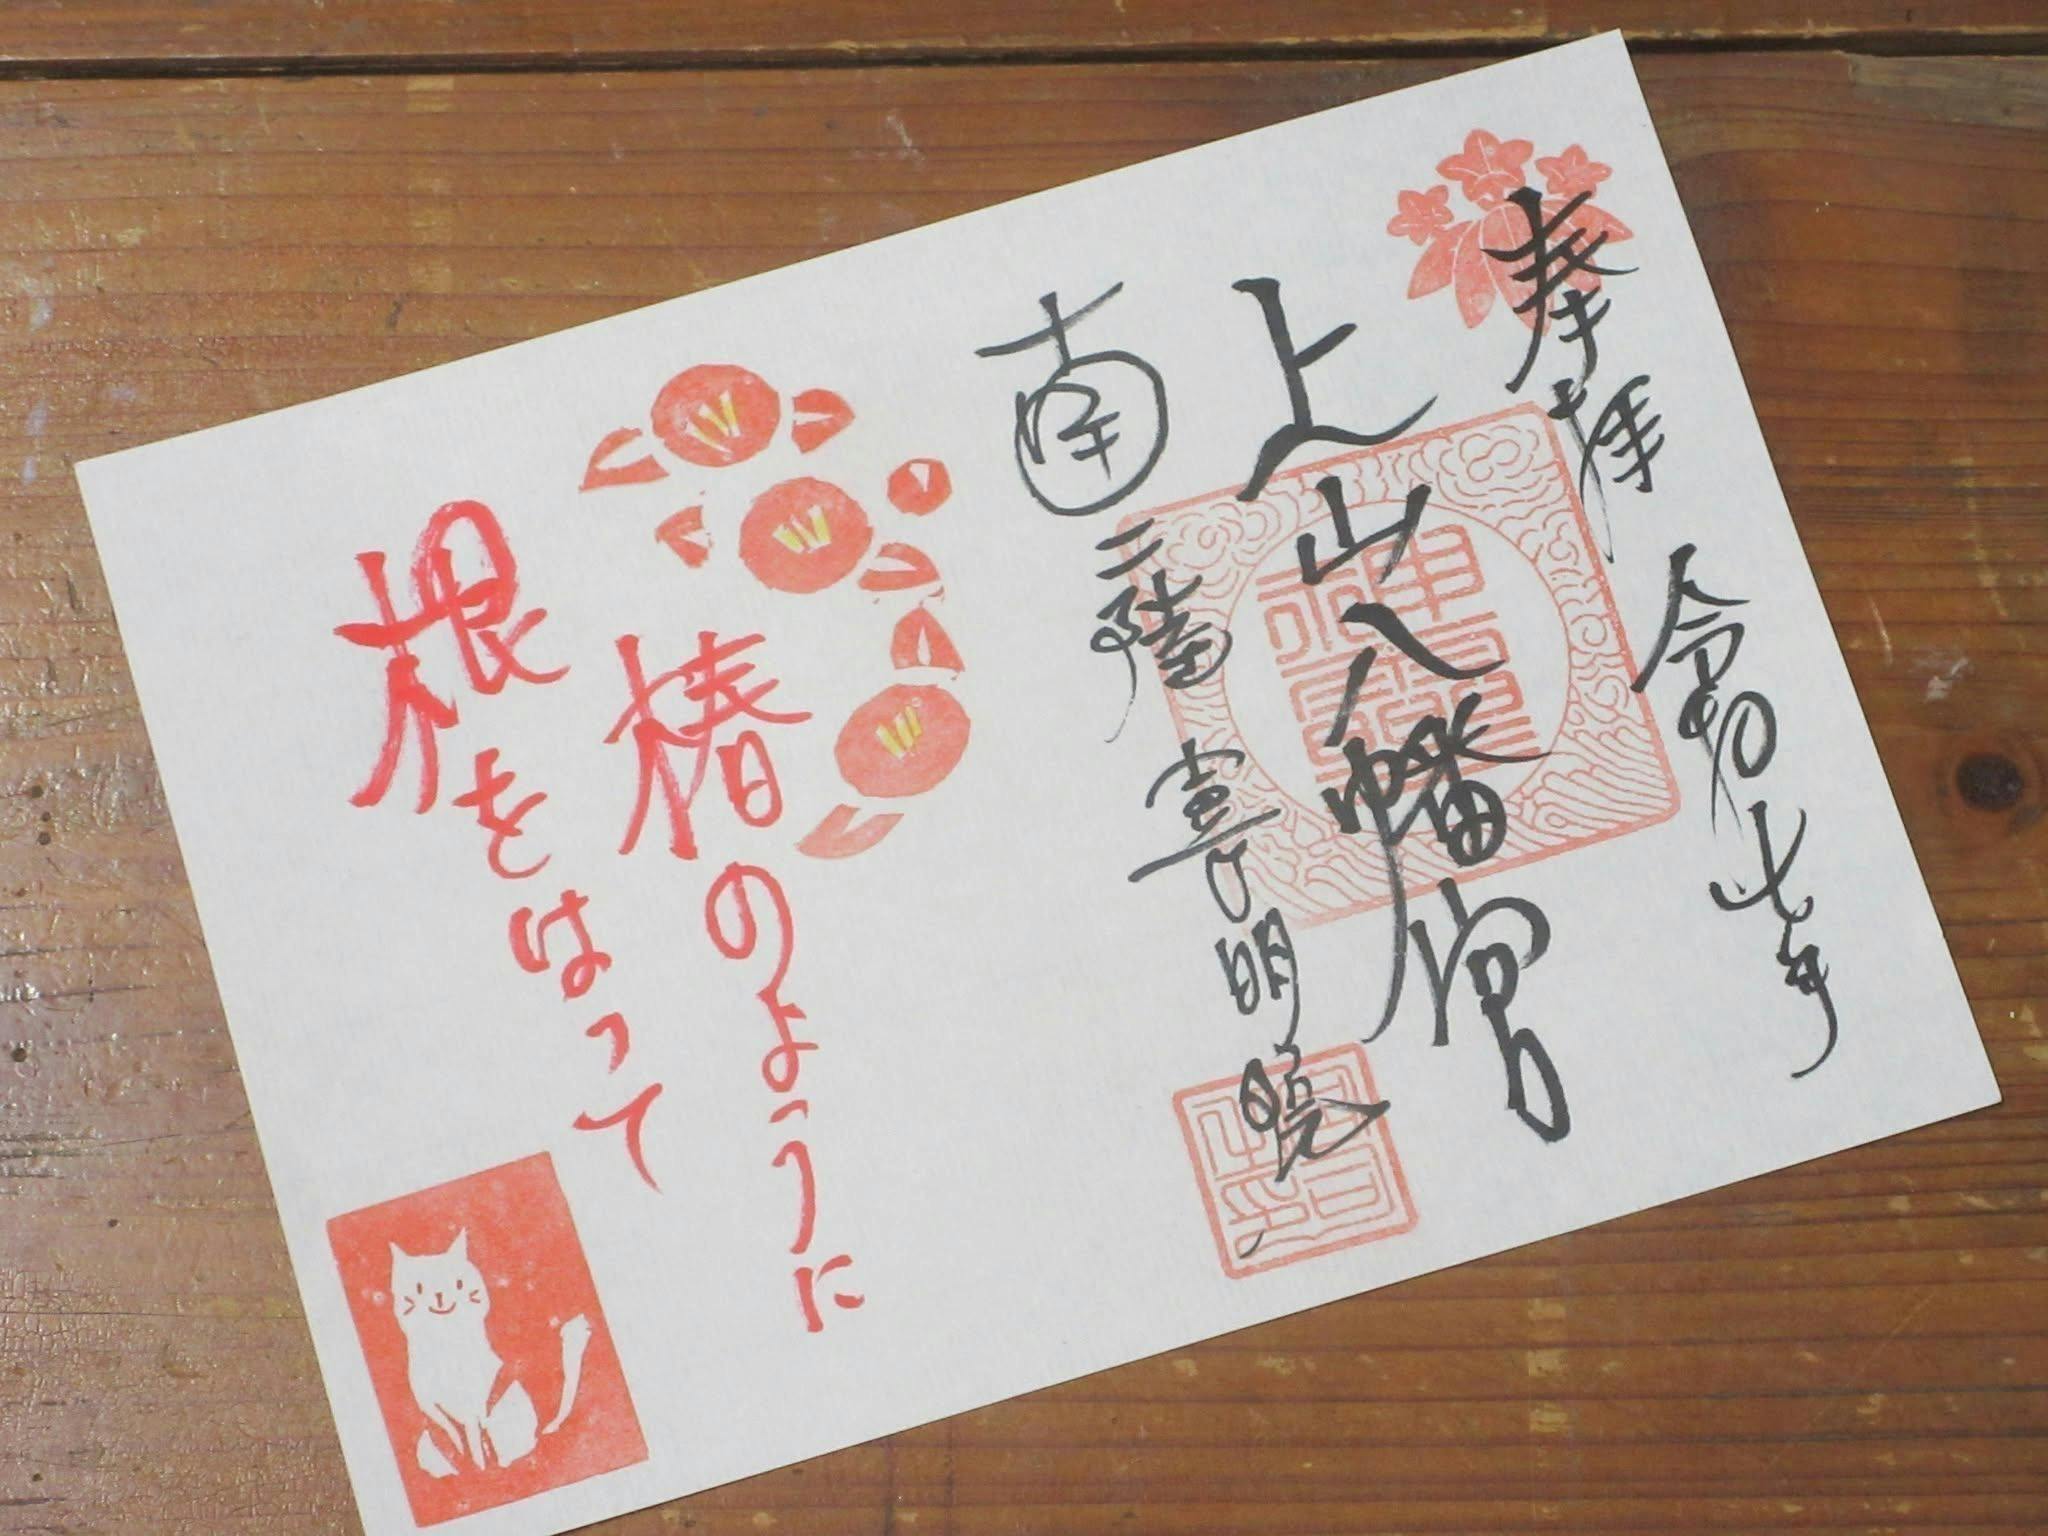 奉拝 令和七年
上山八幡宮
南三陸
椿のように
根をはって